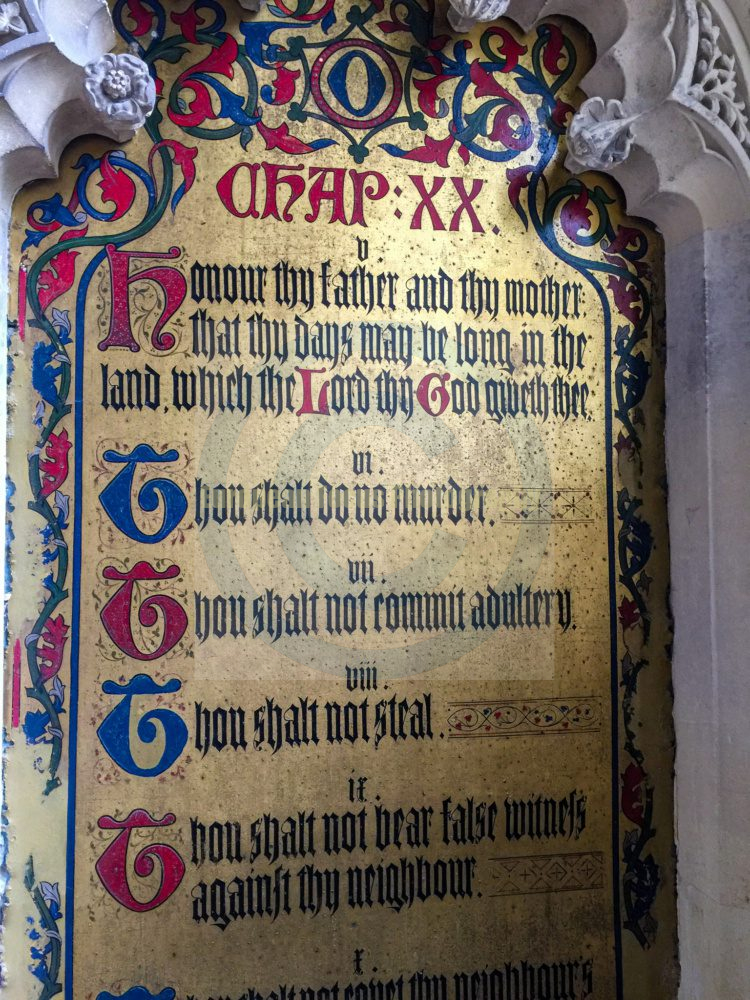 O
CHAP: XX.
v.
Honour thy father and thy mother:
that thy days may be long in the
land, which the Lord thy God giveth thee.
vi.
Thou shalt do no murder.
vii.
Thou shalt not commit adultery.
viii.
Thou shalt not steal.
ix.
Thou shalt not bear false witneſs
againſt thy neighbour.
x.
Thou shalt not covet thy neighbour's